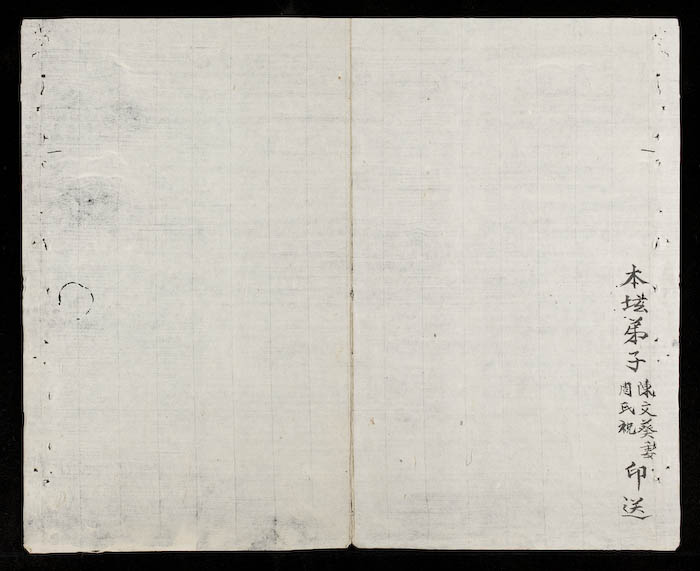 本壇弟子
陳文葵妻
周氏祝
印送